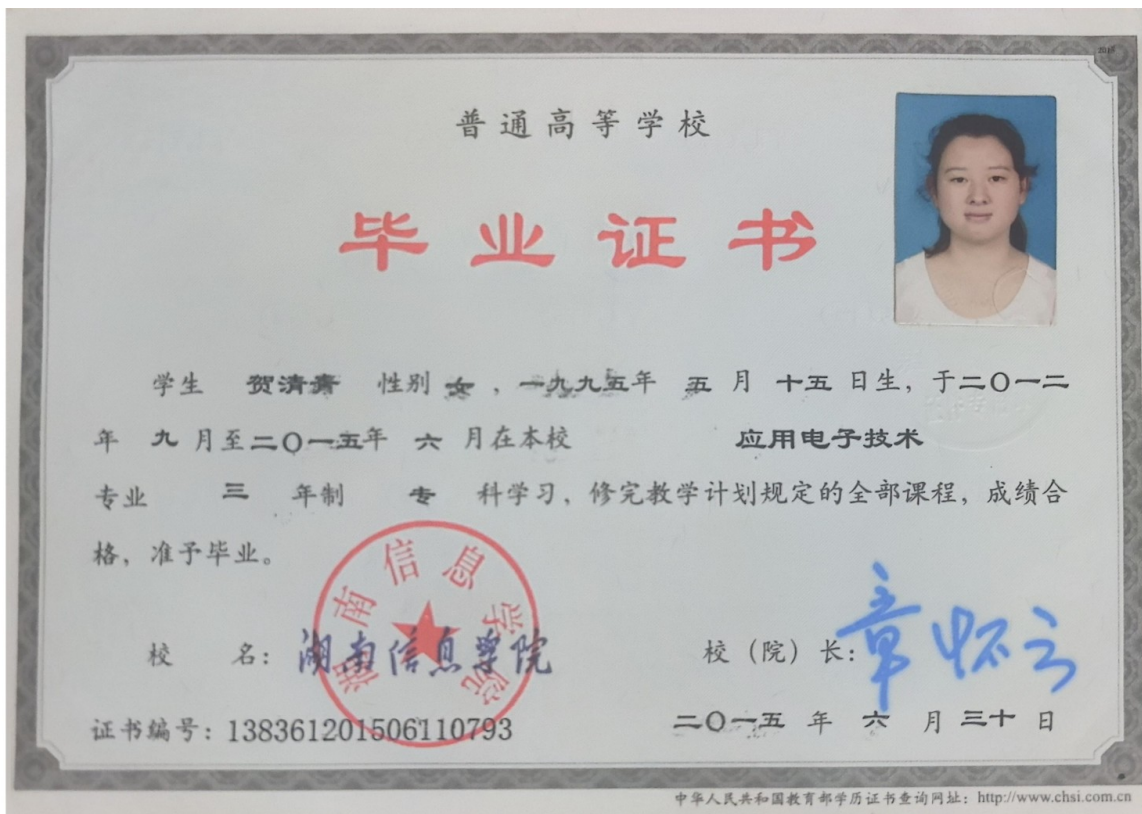 普通高等学校
毕业证书
学生 贺清 性别 女，一九九五年 五 月 十五 日生，于二〇一二
年 九 月至二〇一五年 六 月在本校 应用电子技术
专业 三 年制 专 科学习，修完教学计划规定的全部课程，成绩合
格，准予毕业。
湖南信息学院
校 名：湖南信息学院
校（院）长：章怀云
证书编号：138361201506110793
二〇一五 年 六 月 三十 日
中华人民共和国教育部学历证书查询网址：http://www.chsi.com.cn